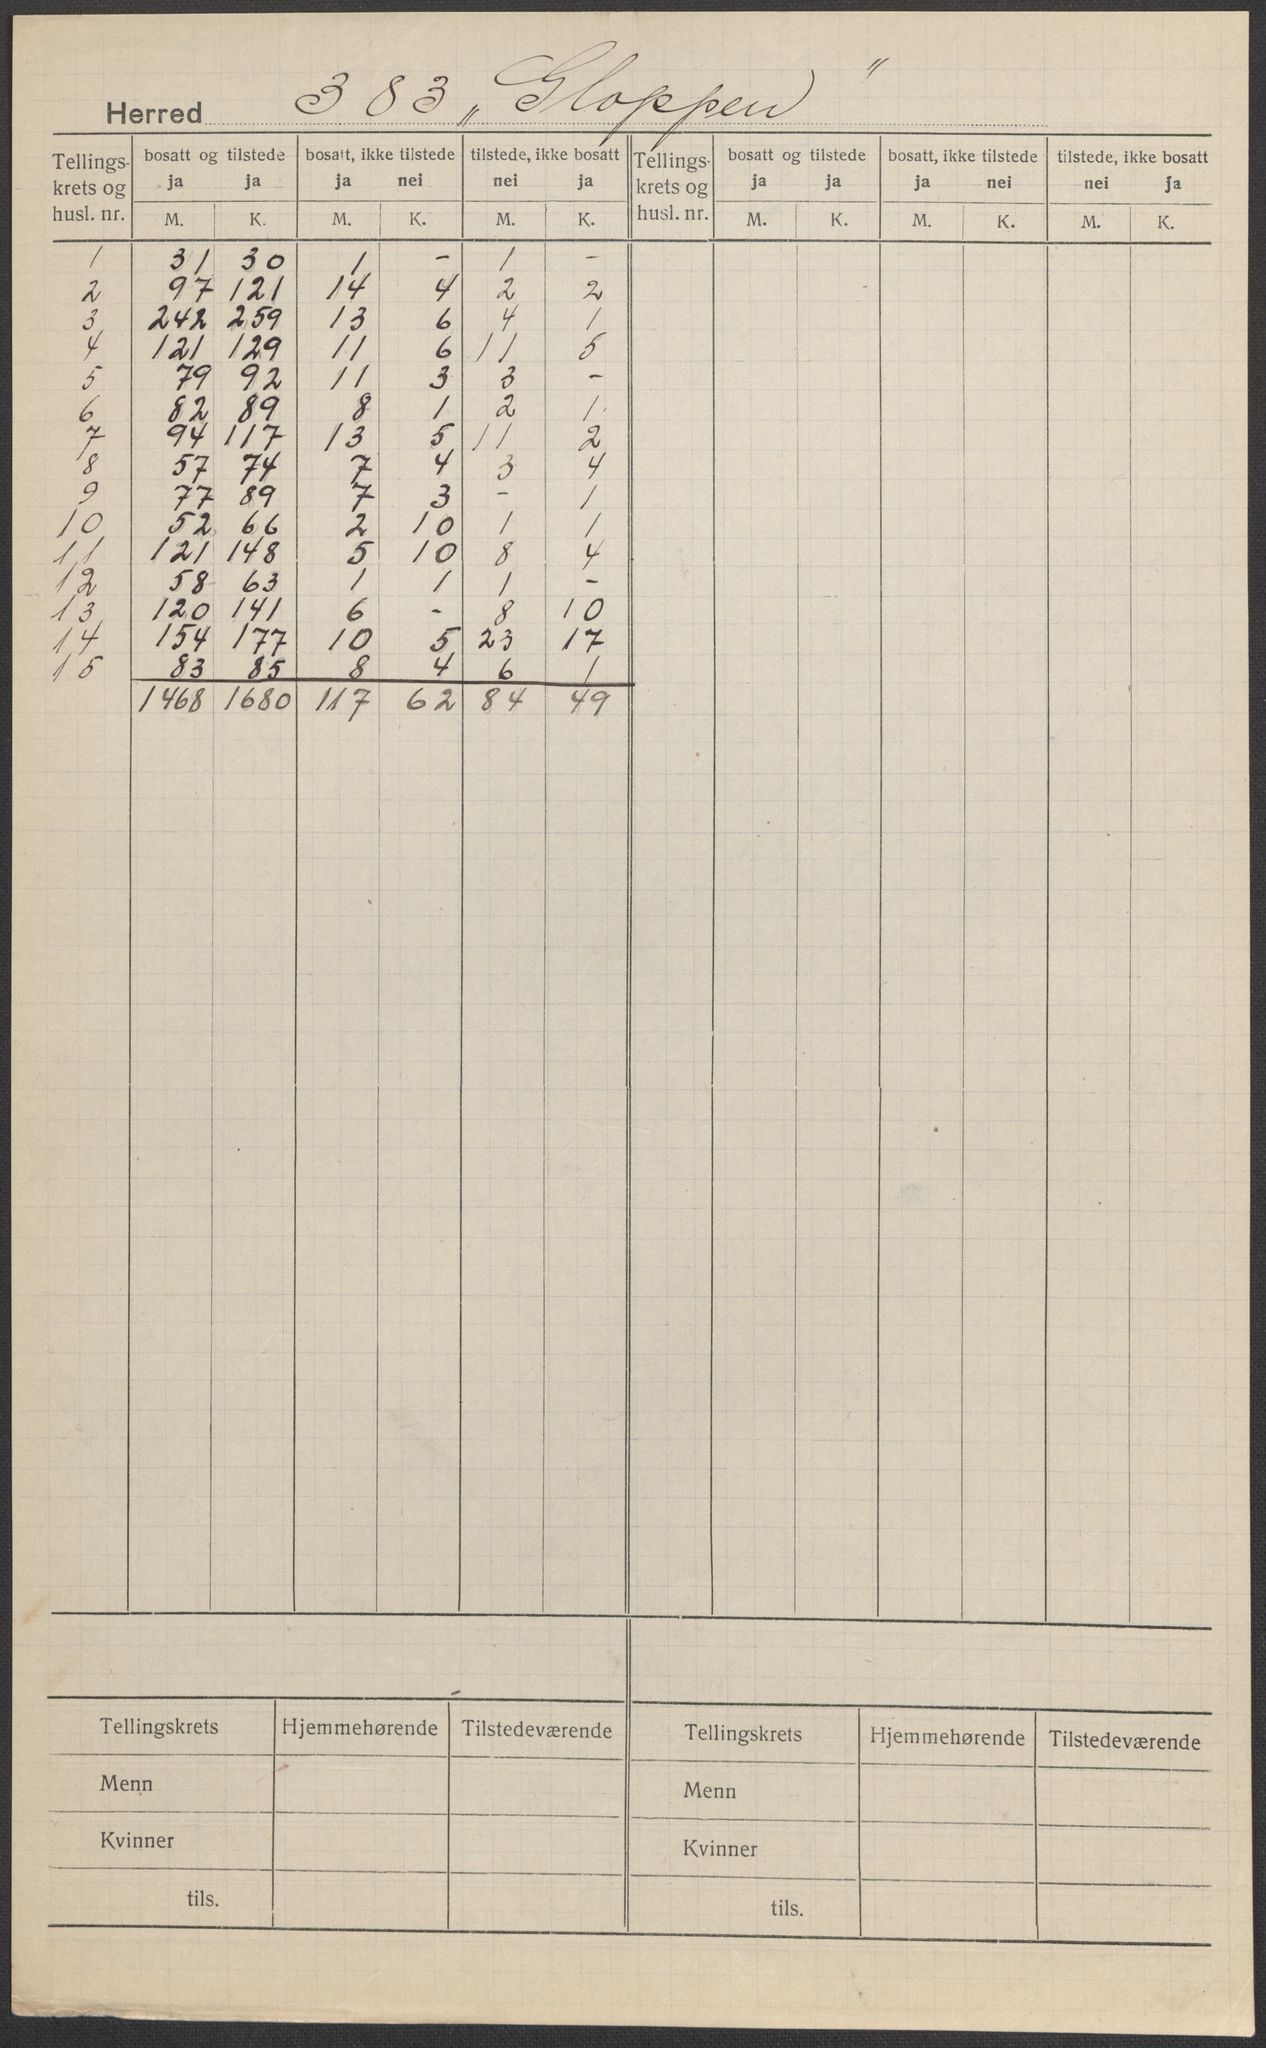 Herred 383 „Gloppen"
Tellings-krets og husl. nr. | bosatt og tilstede | bosatt, ikke tilstede | tilstede, ikke bosatt | Tellings-krets og husl. nr. | bosatt og tilstede | bosatt, ikke tilstede | tilstede, ikke bosatt
ja ja | ja nei | nei ja | ja ja | ja nei | nei ja
M. K. | M. K. | M. K. | M. K. | M. K. | M. K.
1 31 30 1 - 1 -
2 97 121 14 4 2 2
3 242 259 13 6 4 1
4 121 129 11 6 11 5
5 79 92 11 3 3 -
6 82 89 8 1 2 1
7 94 117 13 5 11 2
8 57 74 7 4 3 4
9 77 89 7 3 - 1
10 52 66 2 10 1 1
11 121 148 5 10 8 4
12 58 63 1 1 1 -
13 120 141 6 - 8 10
14 154 177 10 5 23 17
15 83 85 8 4 6 1
1468 1680 117 62 84 49
Tellingskrets Hjemmehørende Tilstedeværende Tellingskrets Hjemmehørende Tilstedeværende
Menn Menn
Kvinner Kvinner
tils. tils.